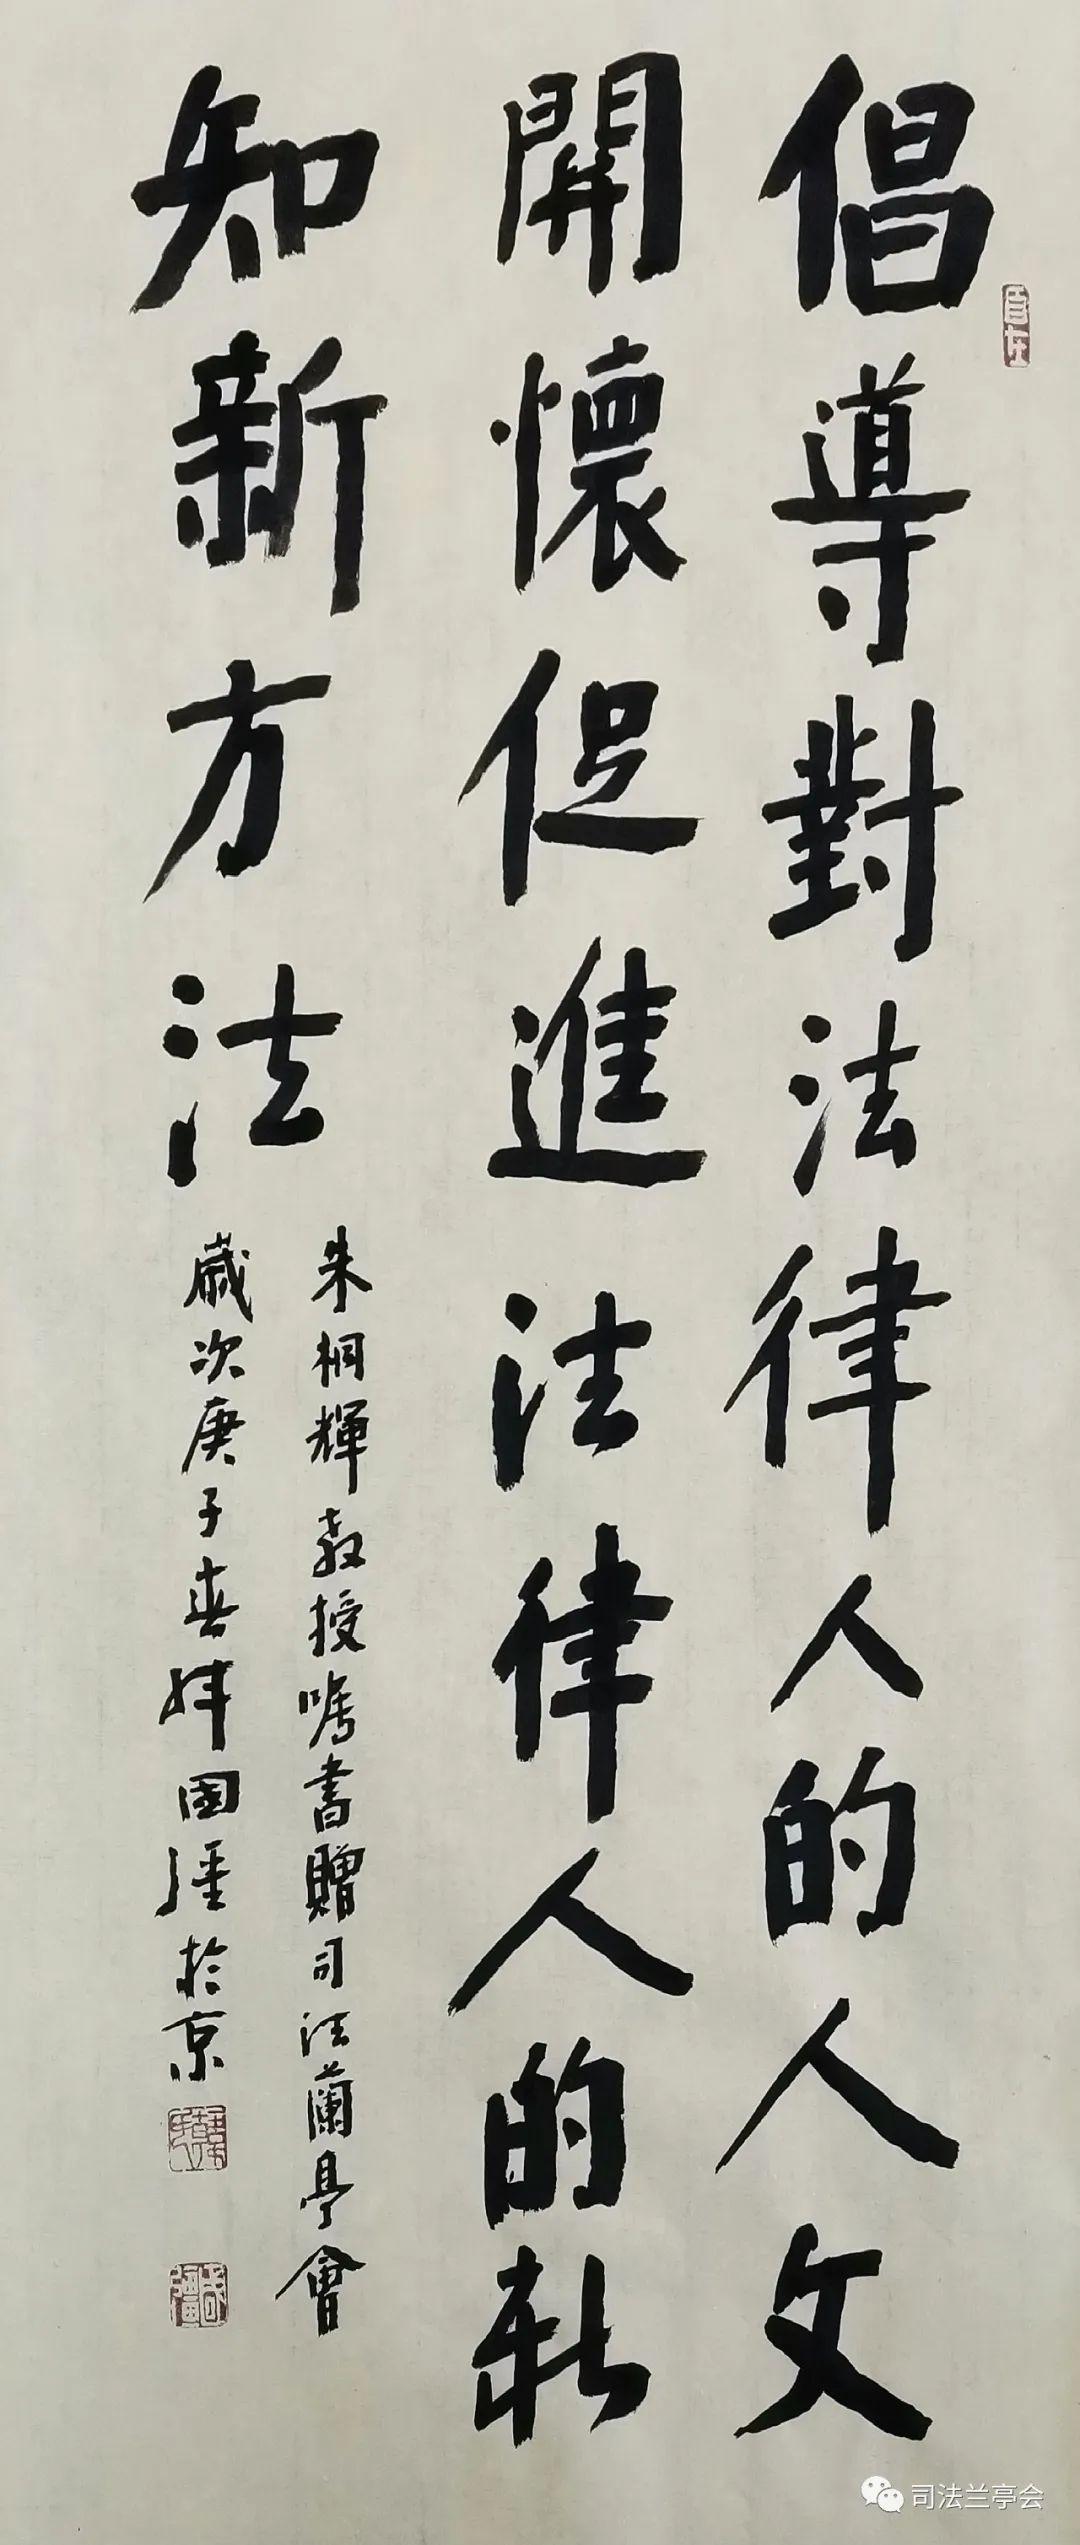 倡導對法律人的人文
開懷促進法律人的新
知新方法
朱桐輝教授嘱書贈司法蘭亭會
歲次庚子春韓國强於京
自在
司法兰亭会